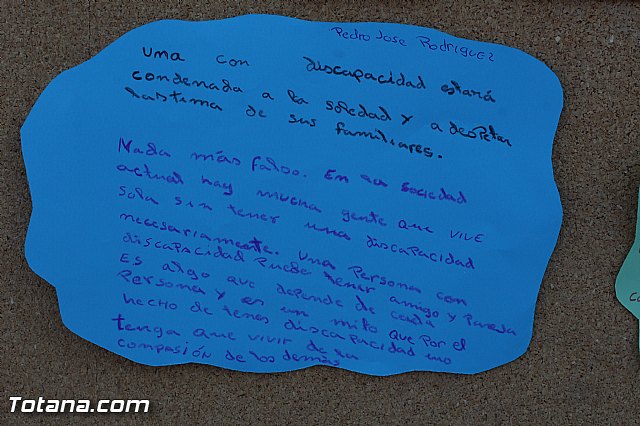 Pedro Jose Rodriguez
uma con discapacidad estará
condenada a la soledad y a despertar
lastima de sus familiares.
Nada más falso. En la sociedad
actual hay mucha gente que vive
sola sin tener una discapacidad
necesariamente. Una persona con
discapacidad puede tener amigo y pareja
Es algo que depende de cada
persona y es un mito que por el
hecho de tener discapacidad uno
tenga que vivir de la
compasión de los demás
Totana.com